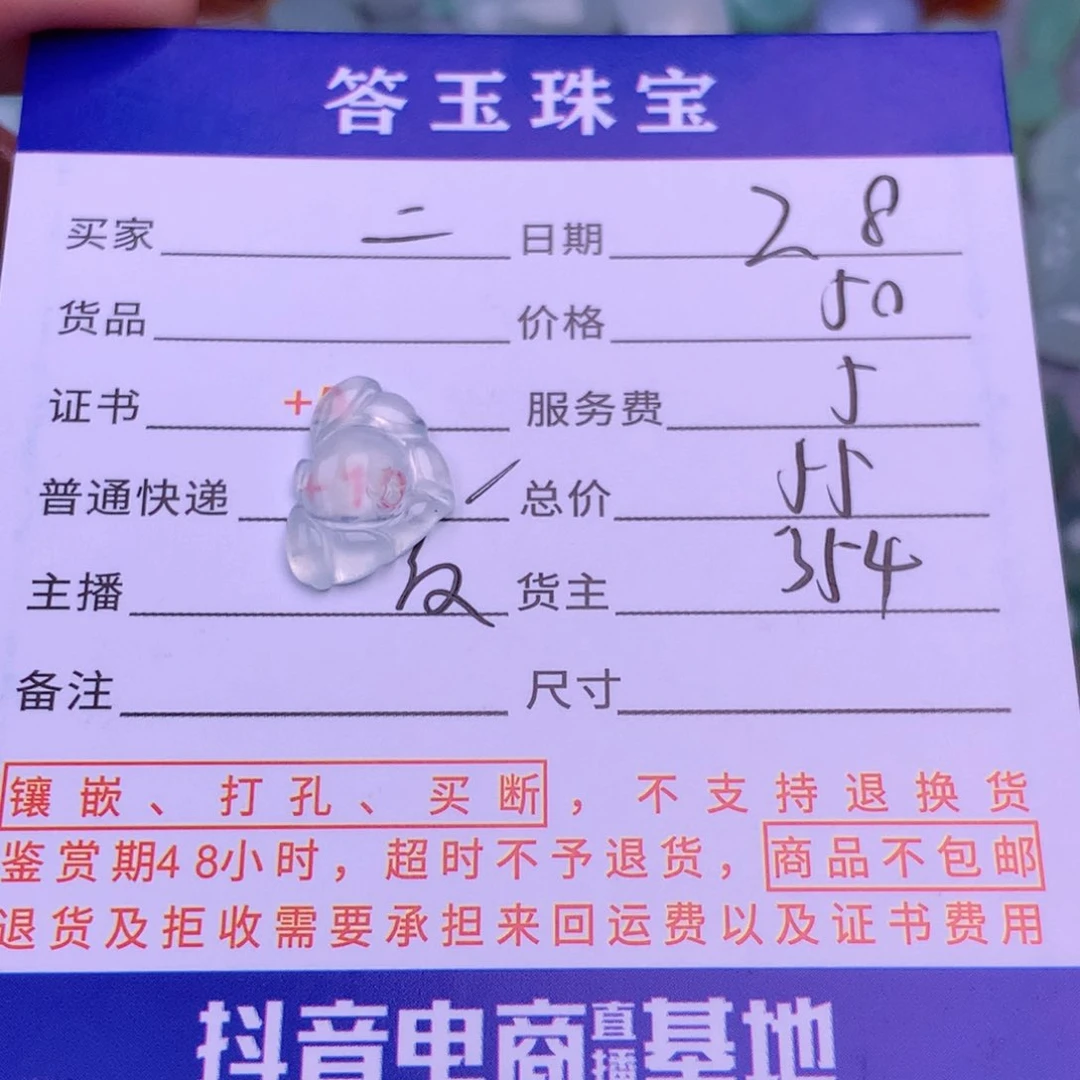 答玉珠宝
买家 二 日期 2 8
货品 价格 50
证书 + 服务费 5
普通快递 +10 / 总价 55
主播 货主 354
备注 尺寸
镶嵌、打孔、买断，不支持退换货
鉴赏期48小时，超时不予退货，商品不包邮
退货及拒收需要承担来回运费以及证书费用
抖音电商直播基地